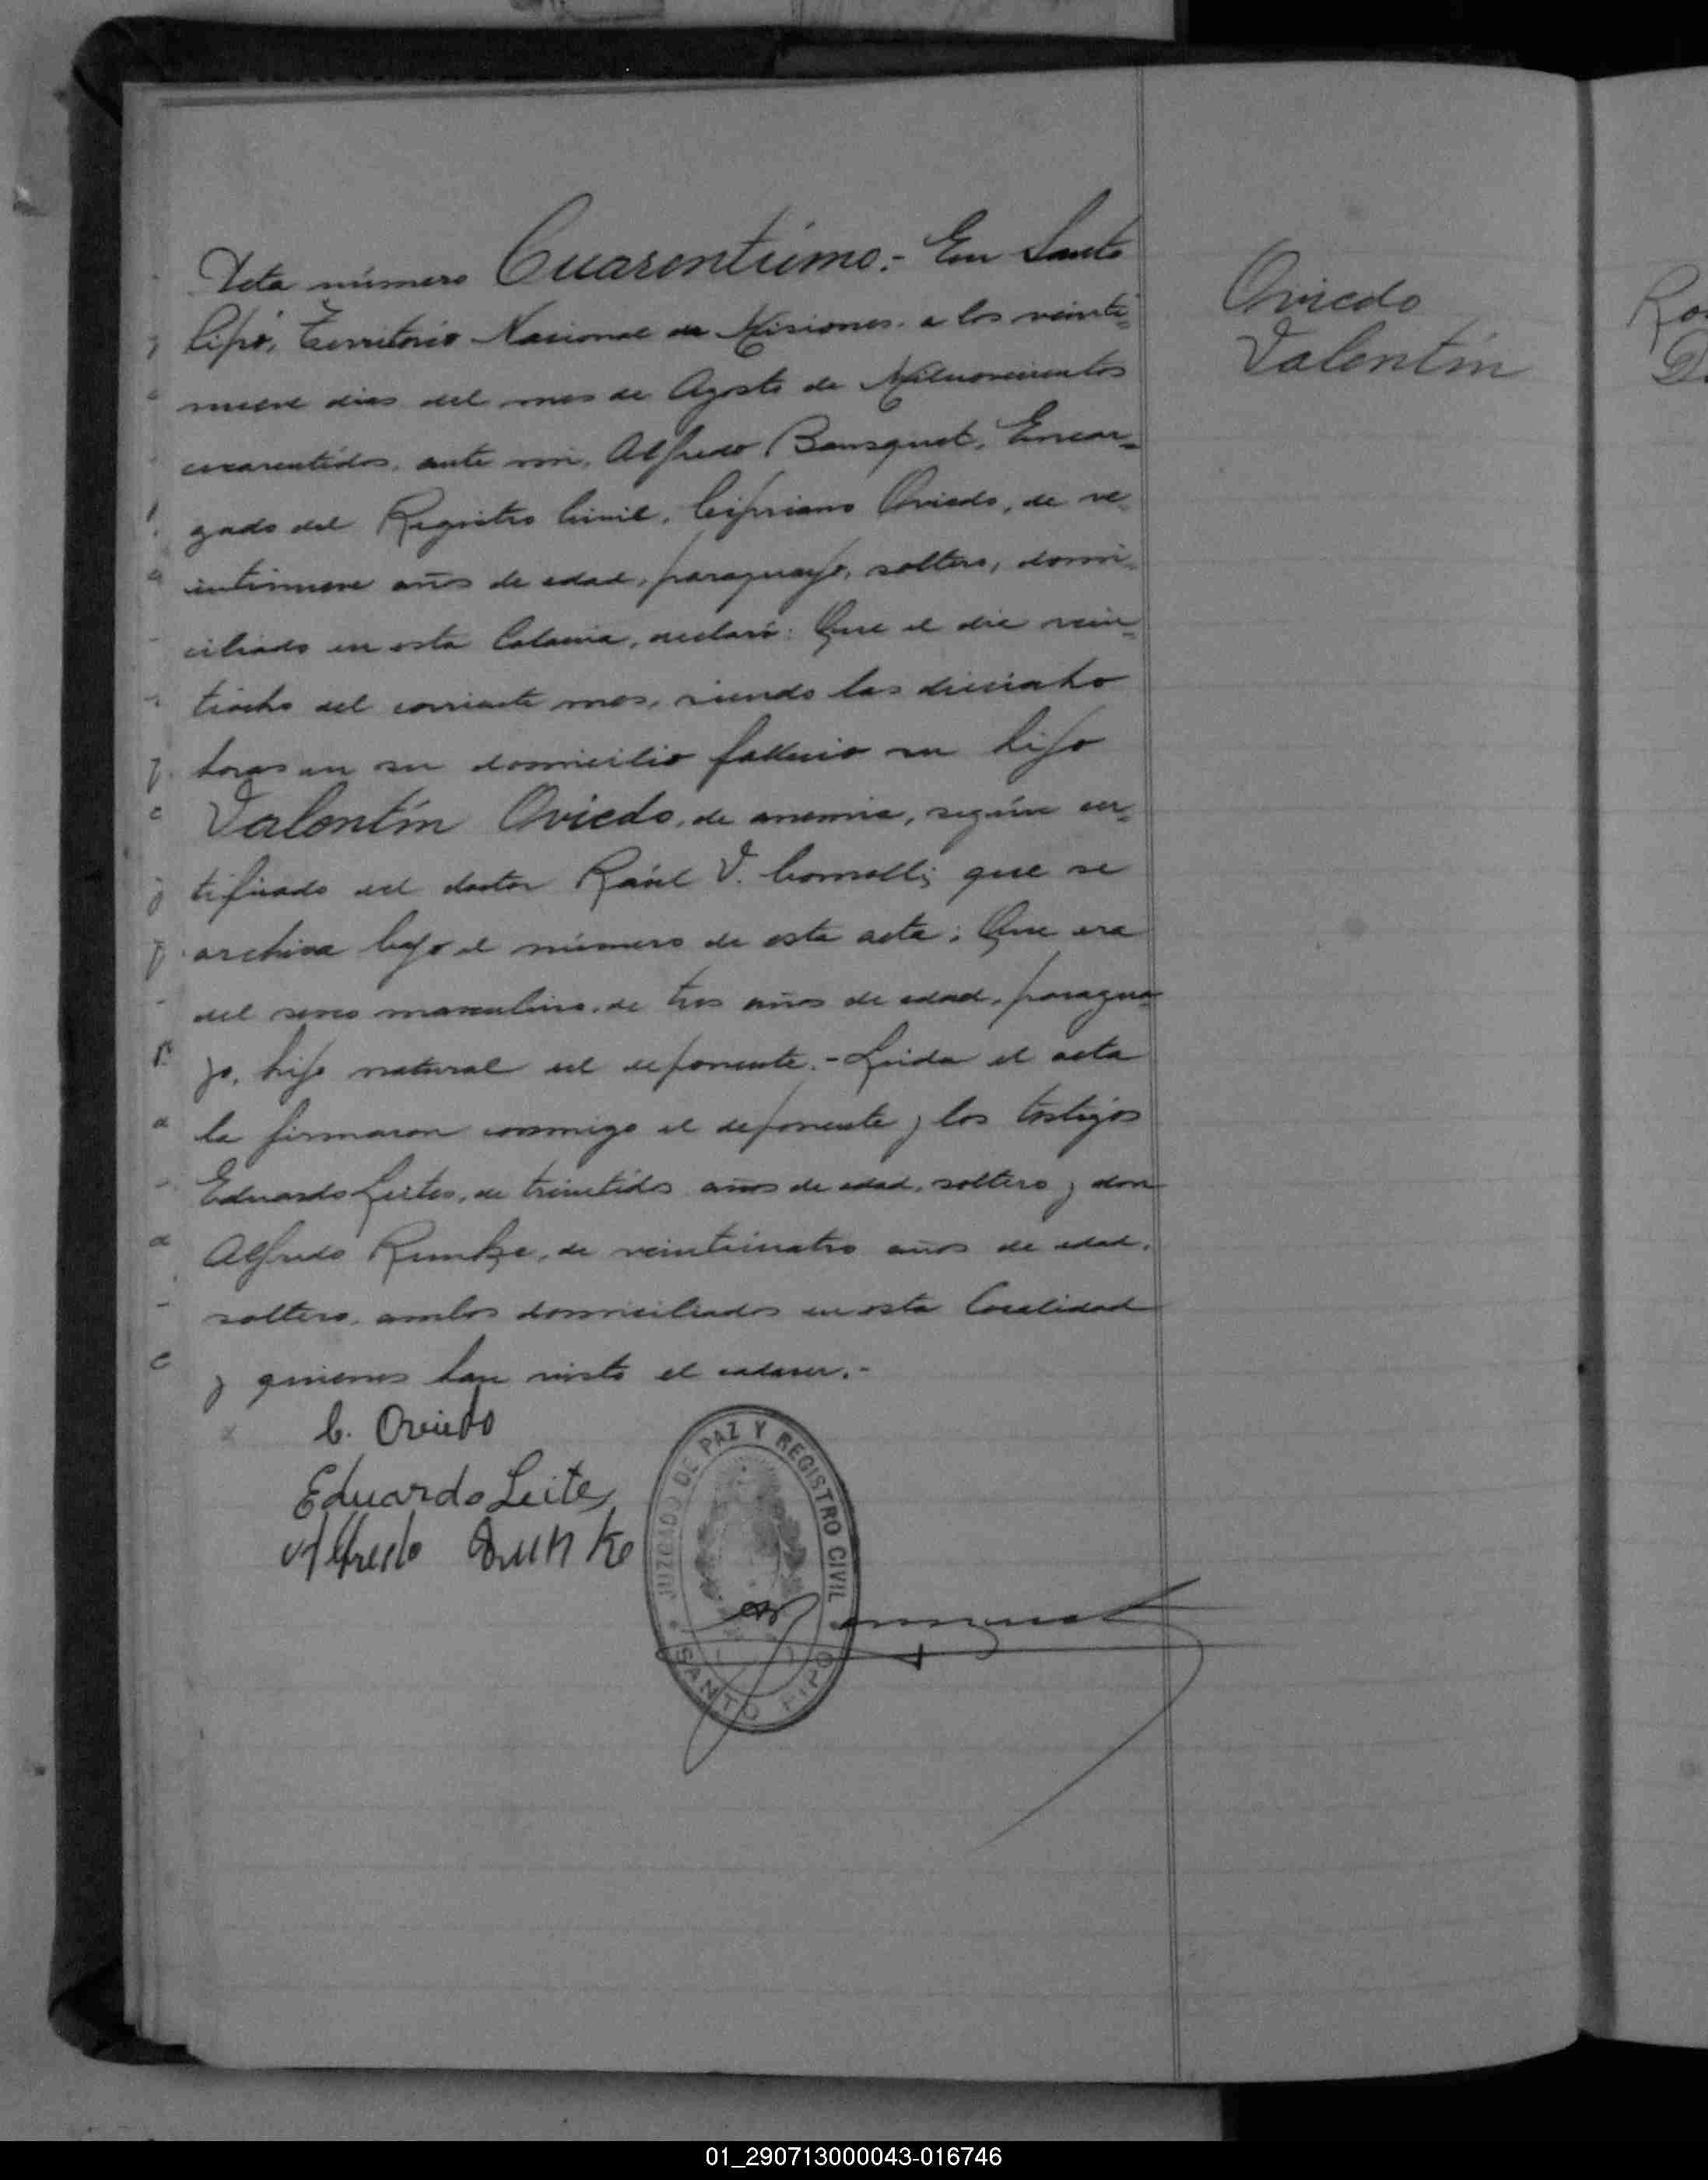 Acta número Cuarentiuno.- En Santo
Pipó, Territorio Nacional de Misiones, a los veinti=
nueve dias del mes de Agosto de Milnovecientos
cuarentidos, ante mi, Alfredo Bousquet, Encar=
gado del Registro Civil, Cipriano Oviedo, de ve=
intinueve años de edad, paraguayo, soltero, domi=
ciliado en esta Colonia, declaró: Que el dia vein=
tiocho del corriente mes, siendo las dieciocho
horas en su domicilio fallecio su hijo
Valentín Oviedo, de anemia, según cer=
tificado del doctor Raúl V. Comolli, que se
archiva bajo el número de esta acta; Que era
del sexo masculino, de tres años de edad, paragua=
yo, hijo natural del deponente.- Leida el acta
la firmaron conmigo el deponente y los testigos
Eduardo Leites, de treintidos años de edad, soltero y don
Alfredo Runke, de veinticuatro años de edad,
soltero, ambos domiciliados en esta localidad
y quienes han visto el cadaver.-
C. Oviedo
Eduardo Leites
Alfredo Runke
JUZGADO DE PAZ Y REGISTRO CIVIL
SANTO PIPO
Oviedo
Valentín
01_290713000043-016746